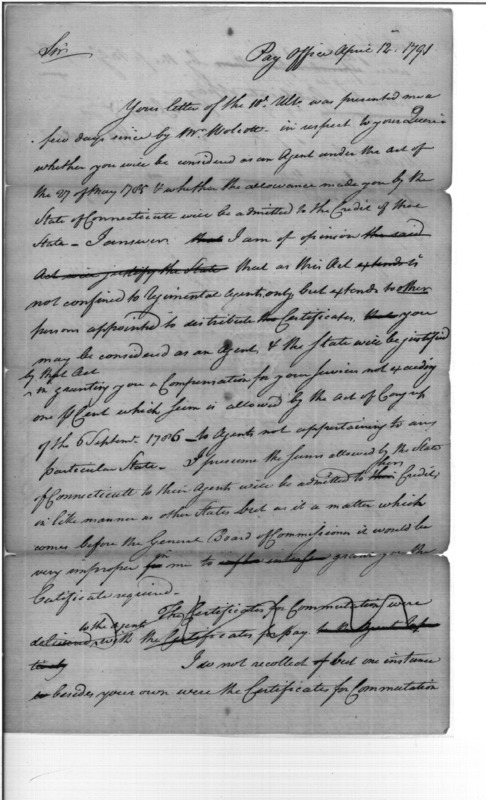 Sir Pay Office April 12th. 1791
Your letter of the 10th. Ulto. was presented me a
few days since by Mr. Wolcott. in respect to your Queries
whether you will be considered as an Agent under the act of
the 27 of May 1785 & whether the allowance made you by the
State of Connecticutt will be admitted to the Credit of that
State - I answer that I am of opinion the said
Act will justify the State that as this Act extends is
not confined to Regimental Agents only but extends to other
persons appointed to distribute the Certificates that you
may be considered as an Agent & the State will be justified
by that Act
in granting you a Compensation for your services not exceeding
one pr Cent which sum is allowed by the act of Congress
of the 6 Septemr. 1786 - to Agents not appertaining to any
particular State - I presume the sums allowed by the State
of Connecticutt to their Agents will be admitted to their Credit
in like manner as other States but as it a matter which
comes before the General Board of Commissioners it would be
very improper for me to grant you the
Certificate required.
The Certificates for Commutation were
to the Agents
delivered with the Certificates for pay to the Agent
I do not recollect of but one instance
to besides your own were the Certificates for Commutation